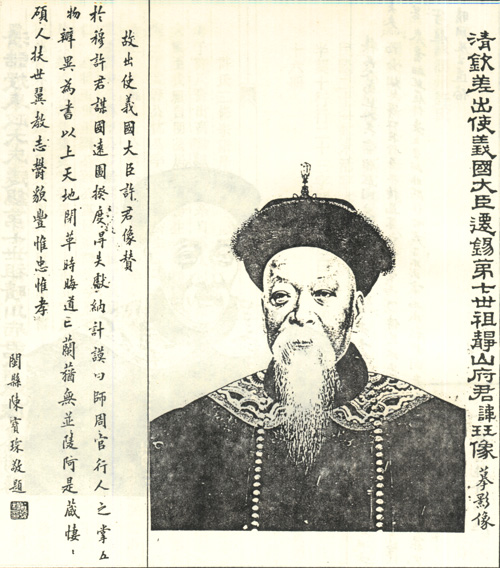 清欽差出使義國大臣遷錫第七世祖靜山府君諱珏像
摹影像
故出使義國大臣許君像贊
於穆許君謀國遠圖揆度得失獻納計謨曰師周官行人之掌五
物辨異為書以上天地閉草時晦道亡蘭無並陵阿是蔵悽〻
碩人扶世翼教志鬱貌豐惟忠惟孝
閩縣陳寶琛敬題